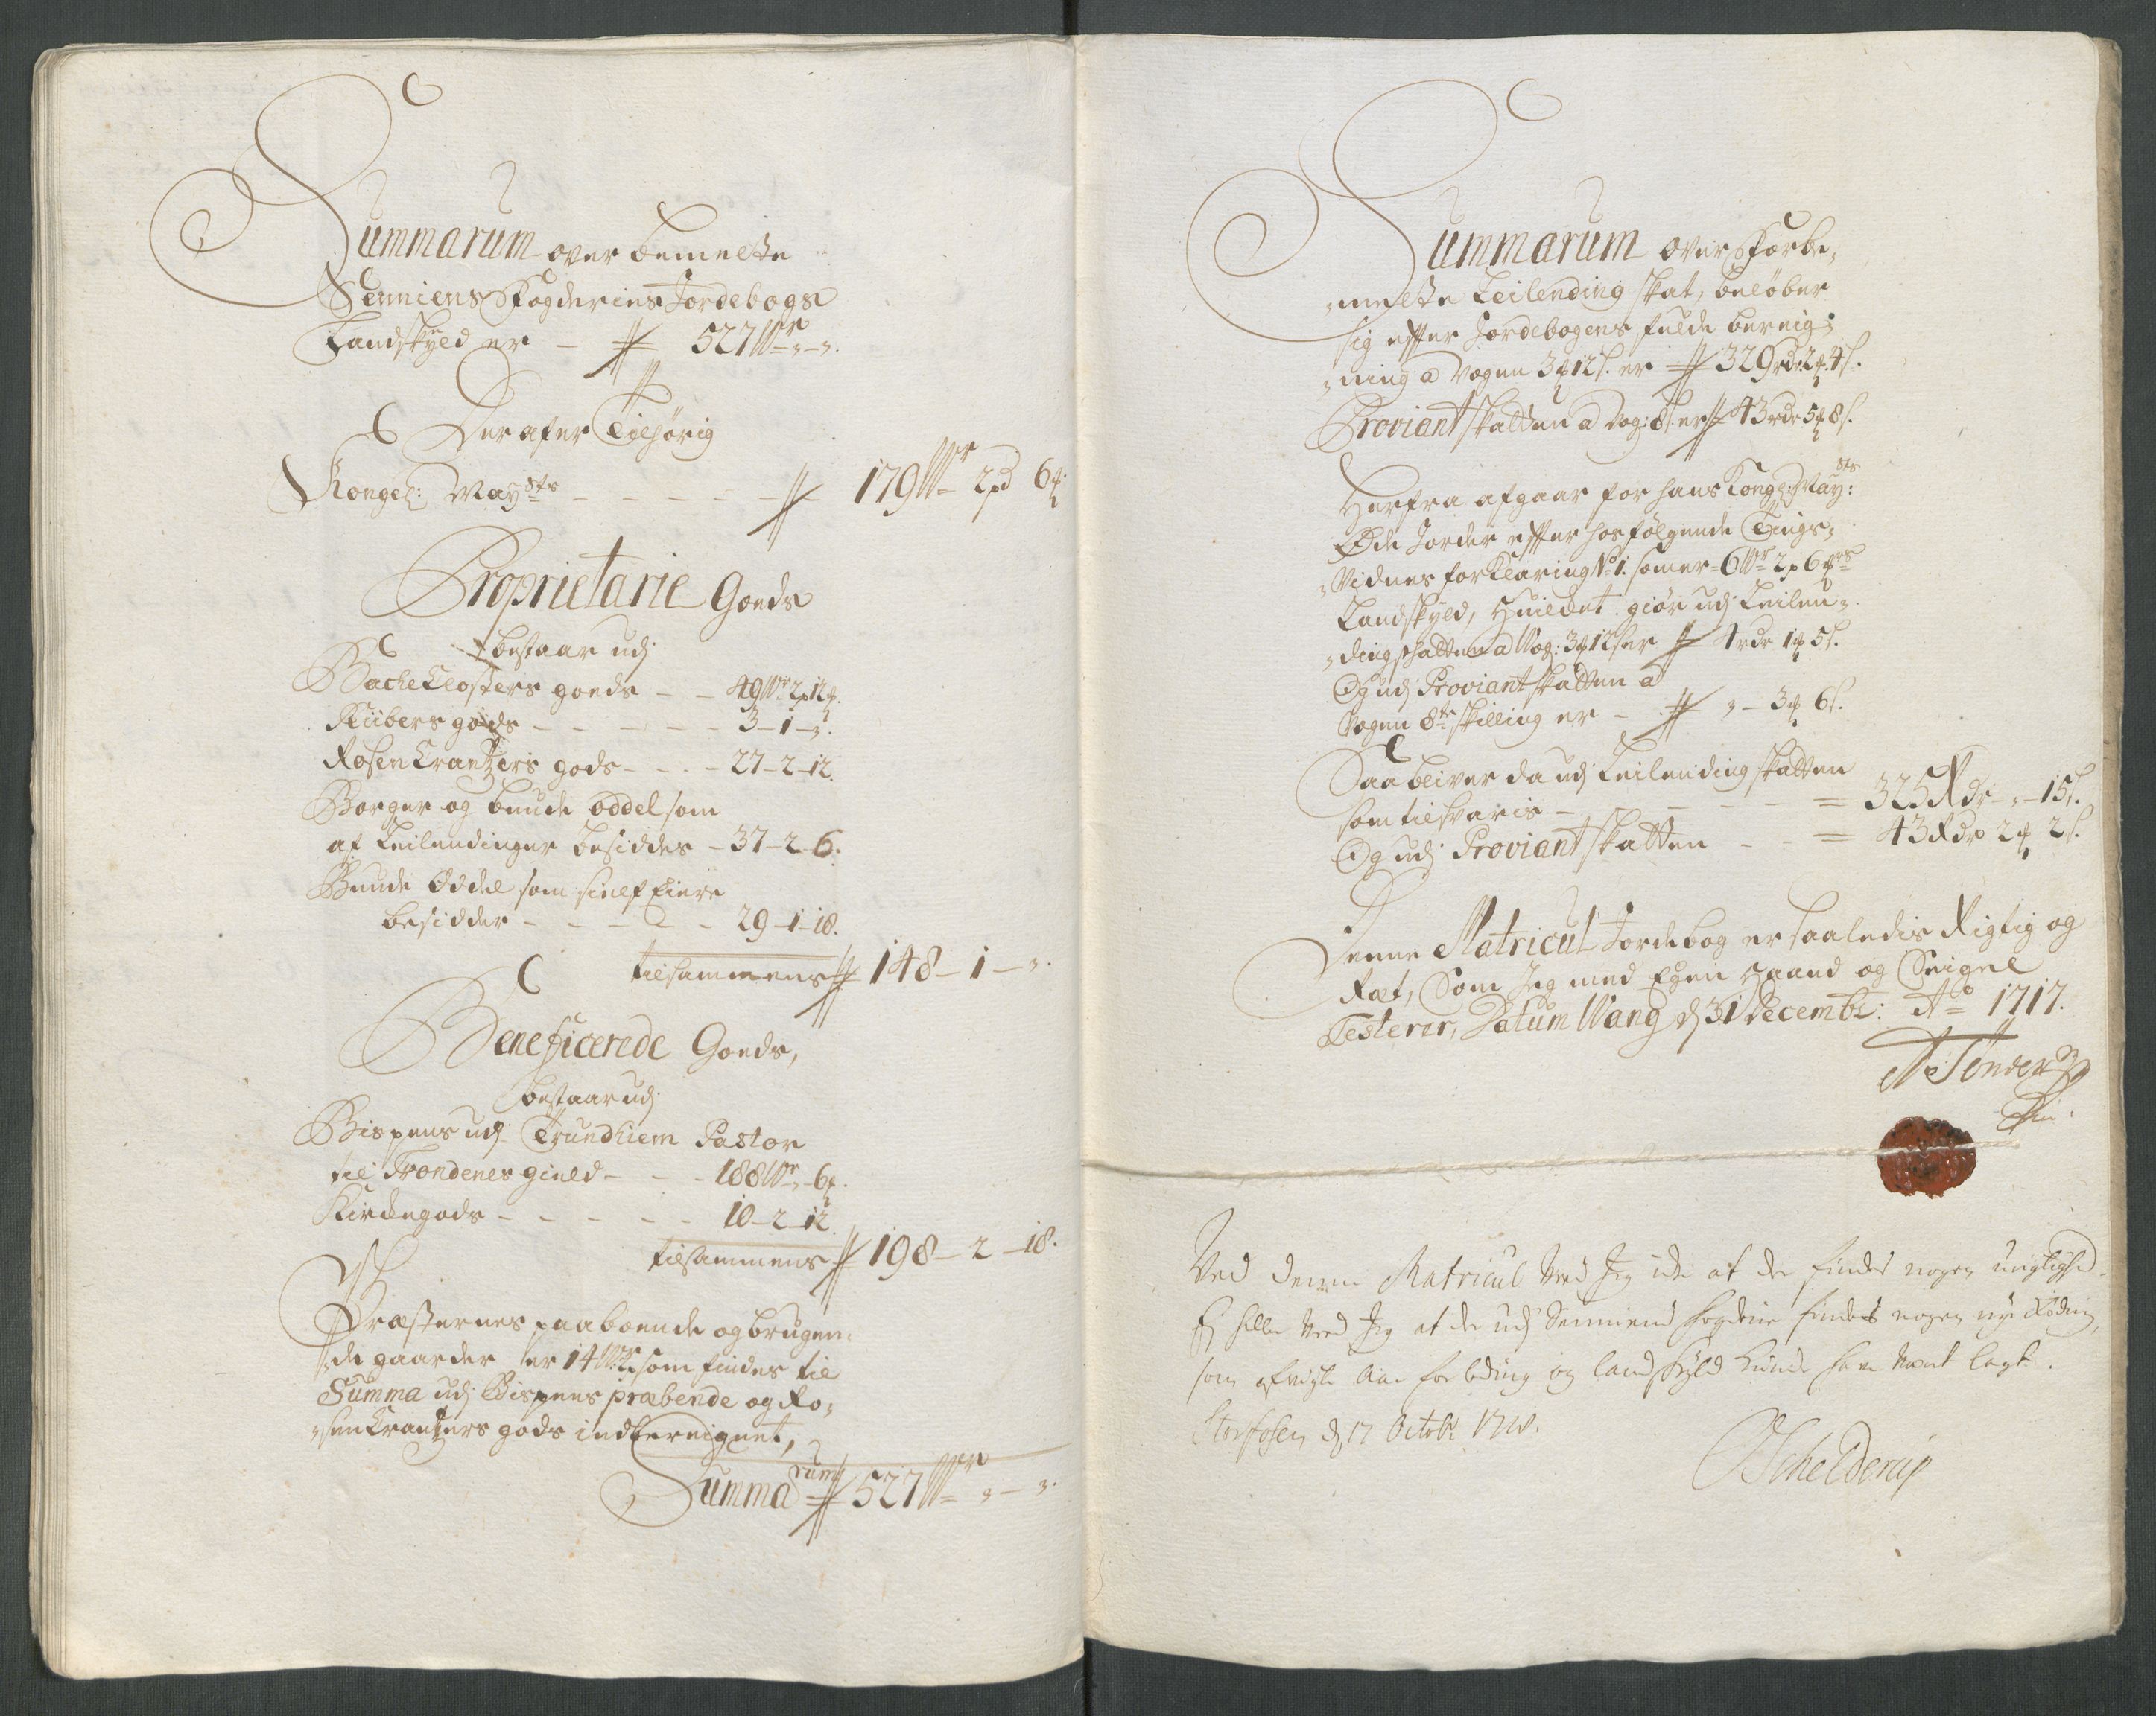 Summarum over bemelte
Senniens Fogderies Jordebogs
Landskyld er - 527 W - " - ".
Der af er Tilhörig
Kongel: May:sts - - - - - 179 W 2 pd 6 #:
Proprietarie Goeds
bestaar udj
Bache Closters goeds - - 49 W 2 p 12 #.
Küibers gods - - - - - 3 - 1 - ".
Rosen Crantzers gods - - - 27 - 2 - 12.
Borger og bunde oddel som
af Leilendinger besiddes - 37 - 2 - 6.
Bunde Oddel som sielf Eiere
besidder - - - - - 29 - 1 - 18.
tilsammens 148 - 1 - ".
Beneficerede Goeds,
bestaar udj
Bispens udj Trundhiem Pastor
til Trondenes gield - - - 188 W " - 6 #.
Kirkegods - - - - - 10 - 2 - 12
tilsammens 198 - 2 - 18.
Præsternes paaboende og brugen,
,de gaarder er 14 W som findes til
Summa udj Bispens præbende og Ro,
,sen Crantzers gods indbereignet,
Summarum 527 W " - ".
Summarum over Forbe,
,melte Leilending skat, beløber
sig efter Jordebogens fulde bereig,
,ning a Wogen 3 # 12 s. er 329 rdr. 2 #. 4 s.
Proviant skatten a Wog: 8 s. er 43 rdr 5 # 8 s.
Herfra afgaar for hans Kongl: May:sts
Øde Jorder efter hosfølgende Tings,
,Vidnes forKlaring No 1. som er 6 W 2 p 6 #
Landskyld, Huilcket giör udj Leilen,
,dingskatten a Wog: 3 # 12 s er 4 rdr 1 # 5 s.
Og udj Proviantskatten a
Wogen 8te skilling er - " - 3 # 6 s.
Saa bliver da udj Leilendingskatten
som tilsvaris - - - - = 325 Rdr - " - 15 s.
Og udj Proviantskatten - - = 43 Rdr 2 # 2 s.
Denne Matricul Jordebog er saaledis Rigtig og
Ræt, Som Jeg med Egen Haand og Seigel
Testerer, Datum Wang d 31 Decembr: Ao 1717.
A Tönder
Ved denne Matricul veed Jeg icke at der findes nogen urigtighed.
Ej heller veed Jeg at der udj Senniens fogderie findes nogen nye Rödning,
som afvigte Aar for leding og landskyld kunde have været lagt.
Storfosen d 17 Octobr 1718.
Schelderup